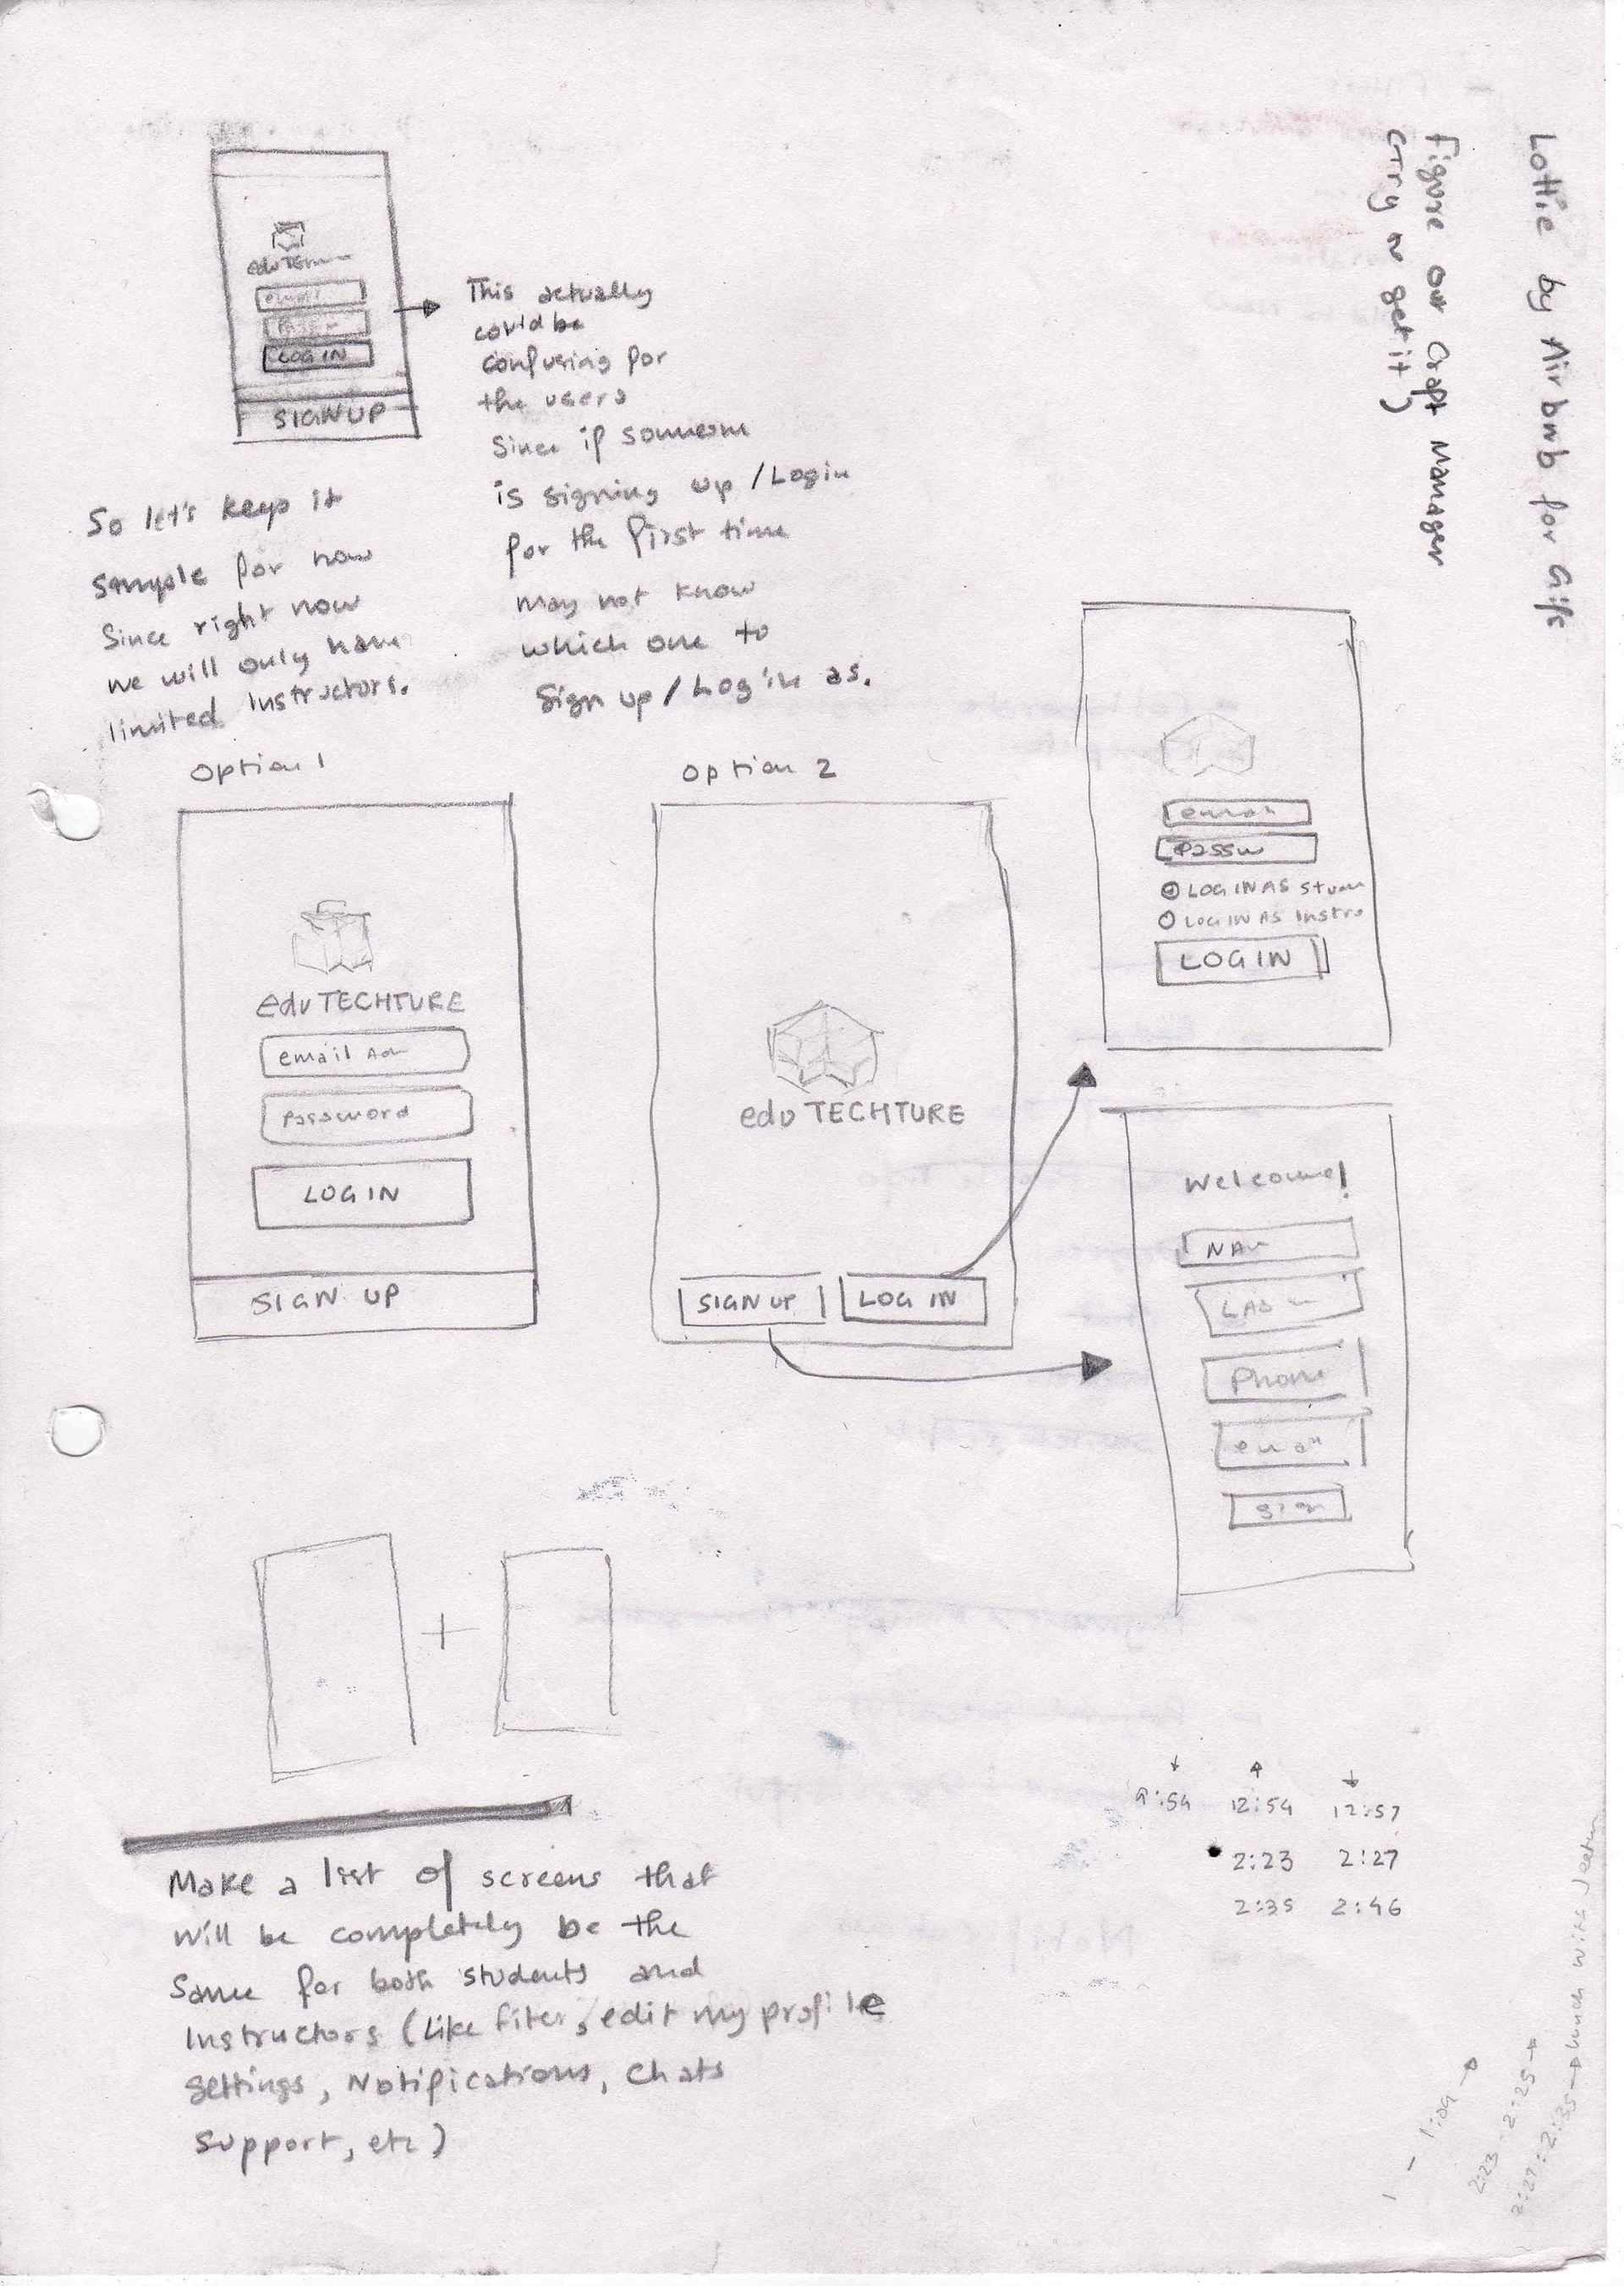 Lottie by Airbnb for Gifs
Figure out Craft Manager
(Try to get it)
email
LOG IN
SIGN UP
This actually
could be
confusing for
the users
Since if someone
is signing up / Login
for the first time
may not know
which one to
Sign up / Login as.
So let's keep it
Sample for now
Since right now
we will only have
limited Instructors.
Option 1
edu TECHTURE
email Adr
Password
LOG IN
SIGN UP
Option 2
edu TECHTURE
SIGN UP
LOG IN
email
Passw
LOG IN AS Stu
LOG IN AS Instru
LOG IN
Welcome!
NA
LAS
Phone
email
Sign
+
Make a list of screens that
will be completely be the
Same for both students and
Instructors (Like filter, edit my profile
Settings, Notifications, Chats
Support, etc)
9:54 12:54 12:57
2:23 2:27
2:35 2:46
2:23 - 2:25 →
2:27 : 2:35 → Lunch with